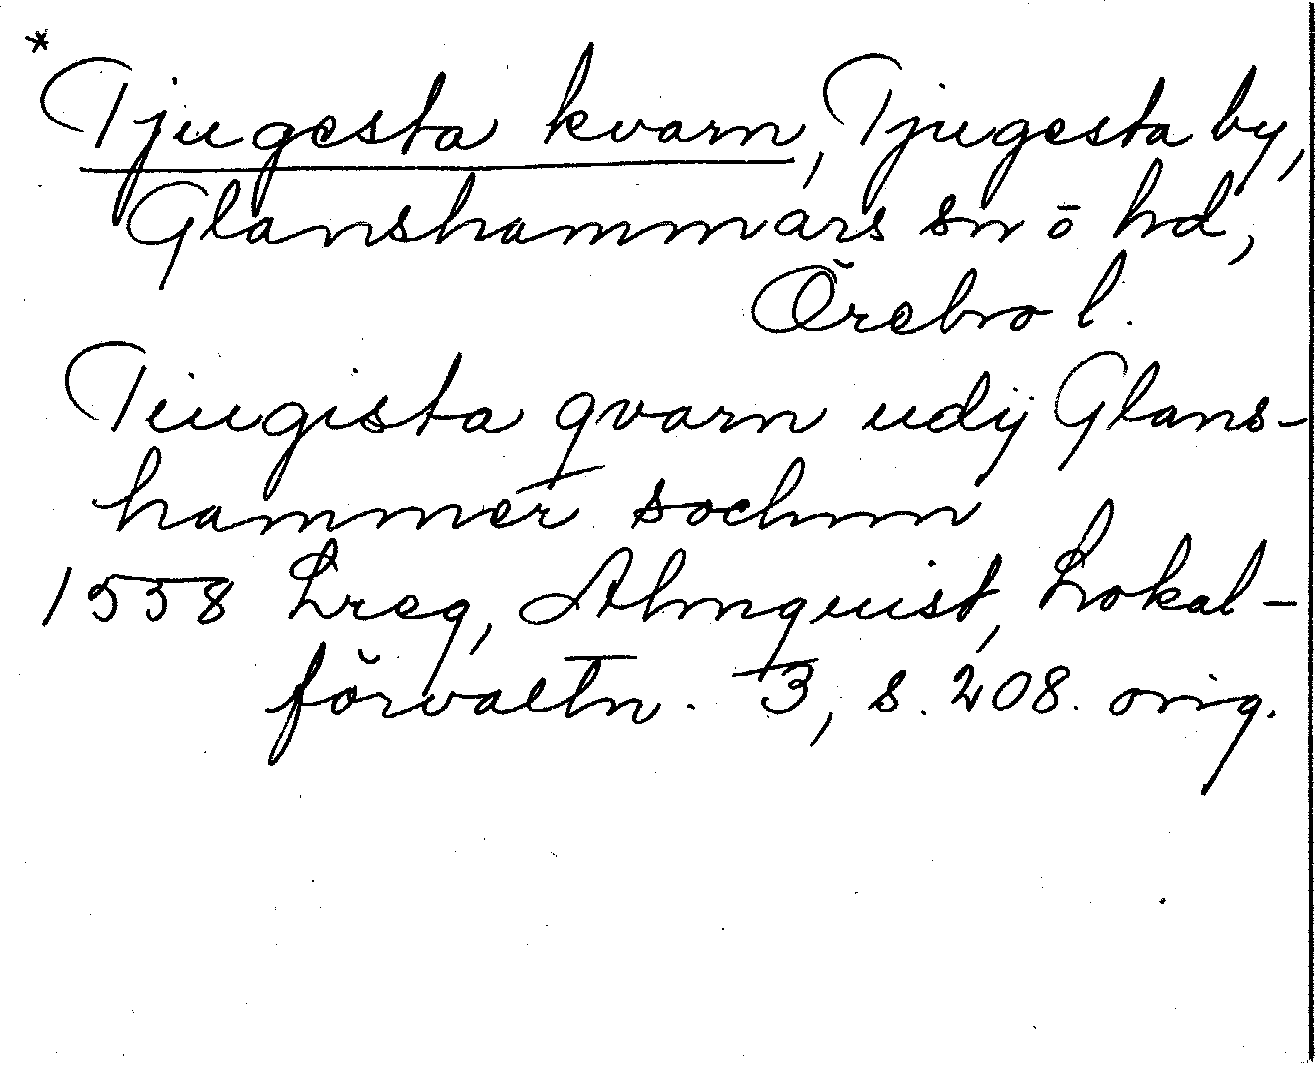 * Tjugesta kvarn, Tjugesta by,
Glanshammars sn o hd,
Örebro l.
Tiugista qvarn udij Glans-
hammer sochnn
1558 Lreg, Almquist, Lokal-
förvaltn. 3, s. 208. orig.